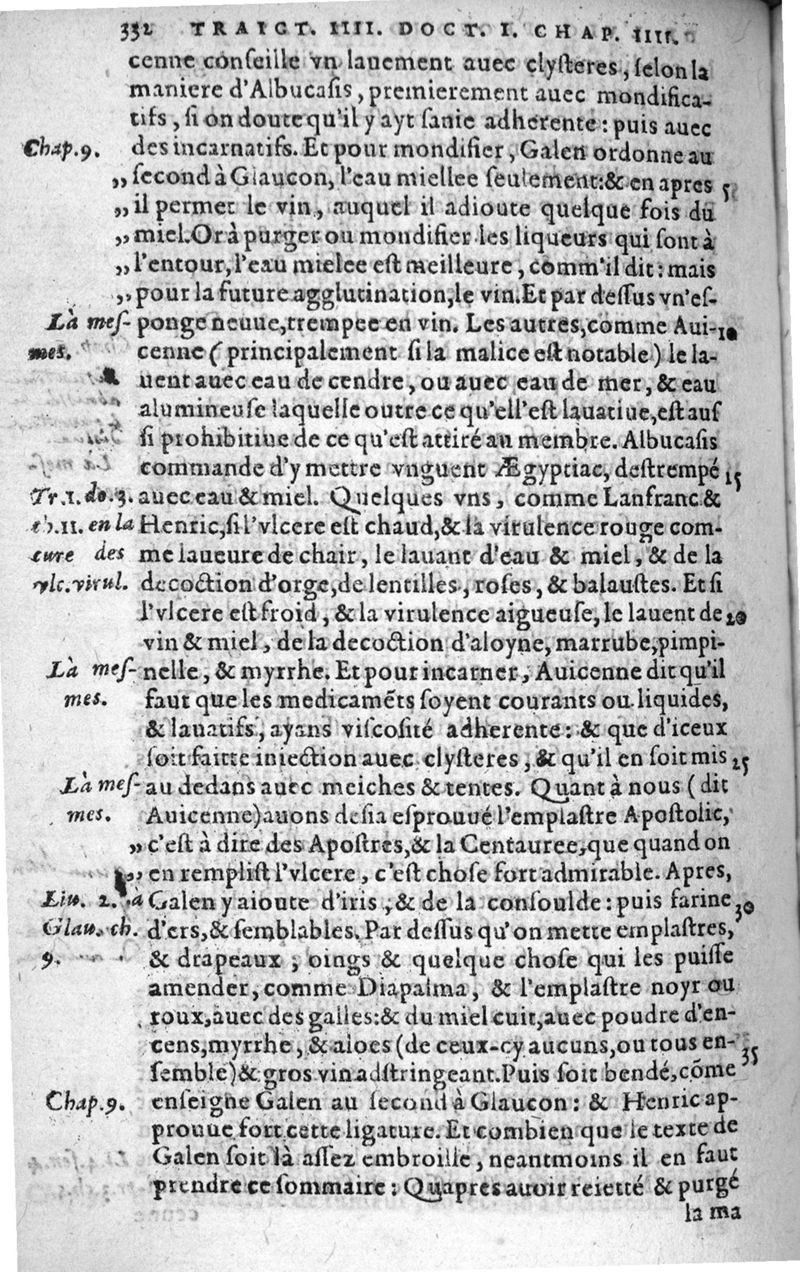 332 TRAICT. IIII. DOCT. I. CHAP. IIII.
cenne conſeille vn lauement auec clyſteres, ſelon la
maniere d'Albucaſis, premierement auec mondifica-
tifs, ſi on doute qu'il y ayt ſanie adherente: puis auec
Chap.9. des incarnatifs. Et pour mondifier, Galen ordonne au
„ ſecond à Glaucon, l'eau miellee ſeulement: & en apres 5
„ il permet le vin, auquel il adioute quelque fois du
„ miel. Or à purger ou mondifier les liqueurs qui ſont à
„ l'entour, l'eau mielee eſt meilleure, comm'il dit: mais
„ pour la future agglutination, le vin. Et par deſſus vn'eſ-
Là meſ- ponge neuue, trempee en vin. Les autres, comme Aui- 10
mes. cenne (principalement ſi la malice eſt notable) le la-
uent auec eau de cendre, ou auec eau de mer, & eau
alumineuſe laquelle outre ce qu'ell'eſt lauatiue, eſt auſ
ſi prohibitiue de ce qu'eſt attiré au membre. Albucaſis
commande d'y mettre vnguent Ægyptiac, deſtrempé 15
Tr.1. do.3. auec eau & miel. Quelques vns, comme Lanfranc &
ch.11. en la Henric, ſi l'vlcere eſt chaud, & la virulence rouge com-
cure des me laueure de chair, le lauant d'eau & miel, & de la
vlc.virul. decoction d'orge, de lentilles, roſes, & balauſtes. Et ſi
l'vlcere eſt froid, & la virulence aigueuſe, le lauent de 20
vin & miel, de la decoction d'aloyne, marrube, pimpi-
Là meſ- nelle, & myrrhe. Et pour incarner, Auicenne dit qu'il
mes. faut que les medicamẽts ſoyent courants ou liquides,
& lauatifs, ayans viſcoſité adherente: & que d'iceux
ſoit faitte iniection auec clyſteres, & qu'il en ſoit mis 25
Là meſ- au dedans auec meiches & tentes. Quant à nous (dit
mes. Auicenne) auons deſia eſprouué l'emplaſtre Apoſtolic,
„ c'eſt à dire des Apoſtres, & la Centauree, que quand on
„ en rempliſt l'vlcere, c'eſt choſe fort admirable. Apres,
Liu. 2. à Galen y aioute d'iris, & de la conſoulde: puis farine 30
Glau. ch. d'ers, & ſemblables. Par deſſus qu'on mette emplaſtres,
9. & drapeaux, oings & quelque choſe qui les puiſſe
amender, comme Diapalma, & l'emplaſtre noyr ou
roux, auec des galles: & du miel cuit, auec poudre d'en-
cens, myrrhe, & aloes (de ceux-cy aucuns, ou tous en- 35
ſemble) & gros vin adſtringeant. Puis ſoit bendé, cõme
Chap.9. enſeigne Galen au ſecond à Glaucon: & Henric ap-
prouue fort cette ligature. Et combien que le texte de
Galen ſoit là aſſez embroille, neantmoins il en faut
prendre ce ſommaire: Qu'apres auoir reietté & purgé
la ma